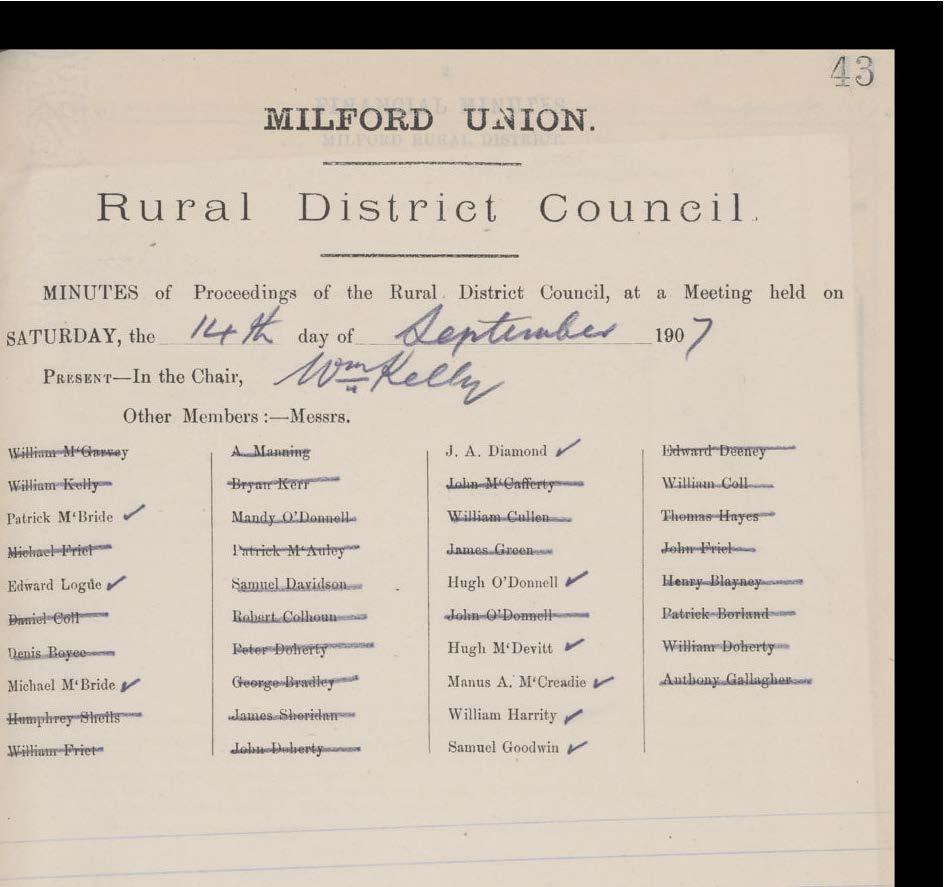 43
MILFORD UNION.
Rural District Council.
MINUTES of Proceedings of the Rural District Council, at a Meeting held on
SATURDAY, the 14th day of September 1907
PRESENT—In the Chair, Wm Kelly
Other Members :—Messrs.
William M‘Garvey
William Kelly
Patrick M‘Bride
Michael Friel
Edward Logue
Daniel Coll
Denis Boyce
Michael M‘Bride
Humphrey Sheils
William Friel
A. Manning
Bryan Kerr
Mandy O’Donnell
Patrick M‘Auley
Samuel Davidson
Robert Colhoun
Peter Doherty
George Bradley
James Sheridan
John Doherty
J. A. Diamond
John M‘Cafferty
William Cullen
James Green
Hugh O’Donnell
John O’Donnell
Hugh M‘Devitt
Manus A. M‘Creadie
William Harrity
Samuel Goodwin
Edward Deeney
William Coll
Thomas Hayes
John Friel
Henry Blayney
Patrick Borland
William Doherty
Anthony Gallagher